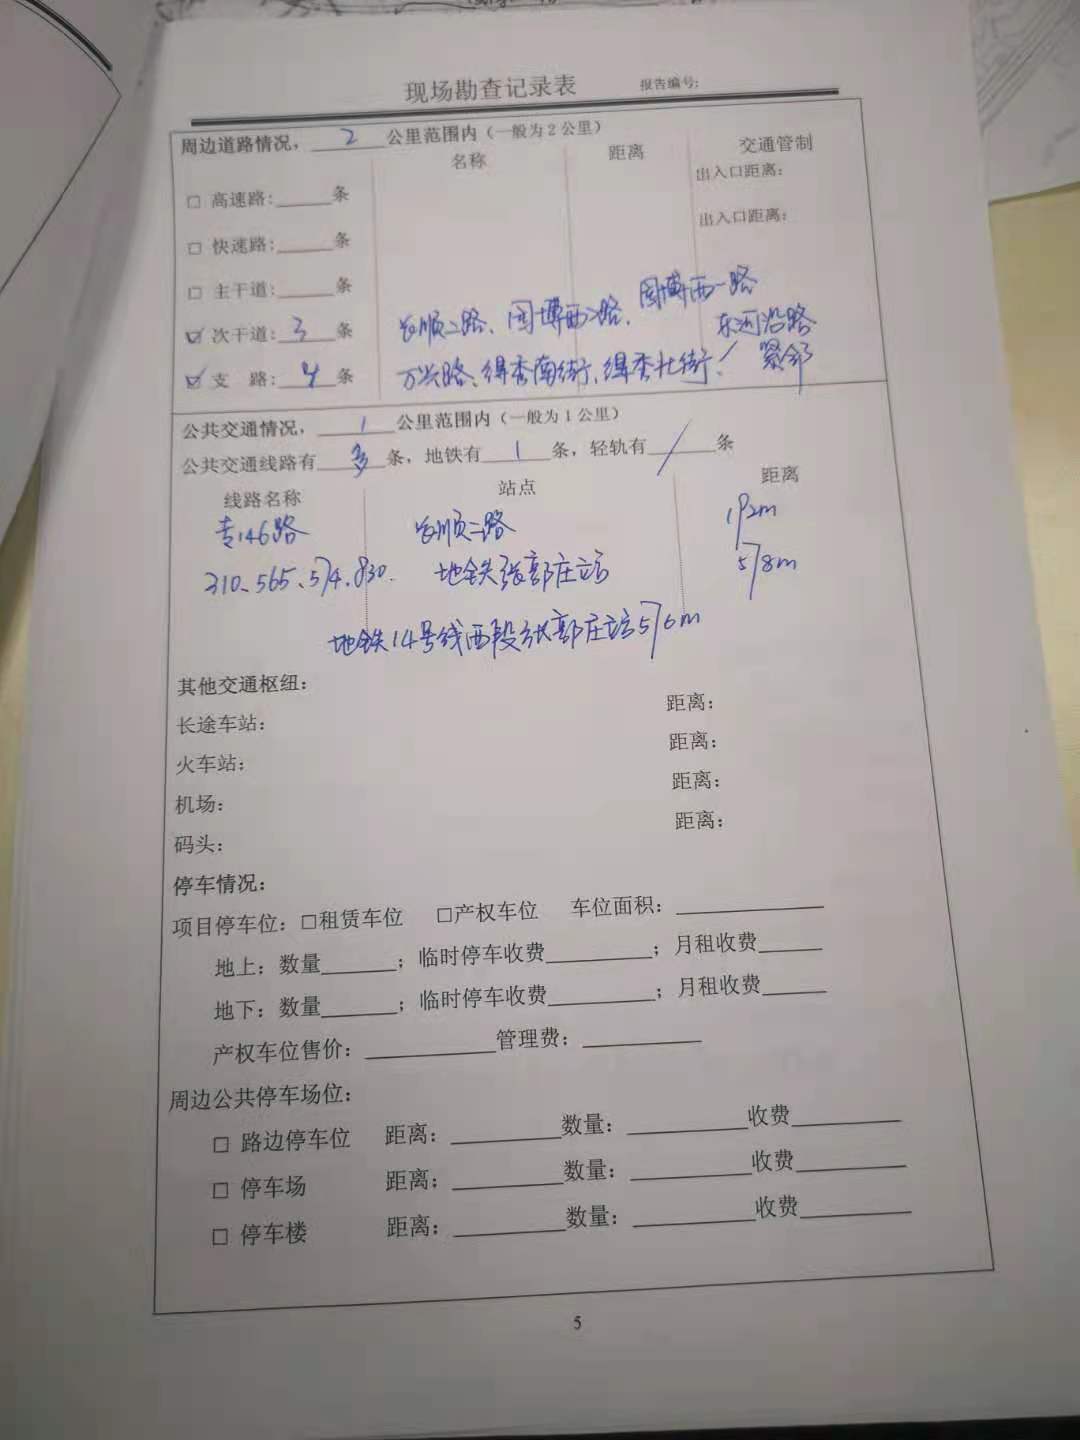 现场勘查记录表 报告编号:
周边道路情况，2公里范围内（一般为2公里）
名称 距离 交通管制
□ 高速路:______条 出入口距离:
□ 快速路:______条 出入口距离:
□ 主干道:______条
☑ 次干道:3条 长顺二路、园博西二路、园博西一路
☑ 支 路:4条 万兴路、得秀南街、得秀北街、东河沿路 紧邻
公共交通情况，1公里范围内（一般为1公里）
公共交通线路有多条，地铁有1条，轻轨有/条
线路名称 站点 距离
专146路 长顺二路 192m
310、565、574、830. 地铁张郭庄站 578m
地铁14号线西段张郭庄站576m
其他交通枢纽:
长途车站: 距离:
火车站: 距离:
机场: 距离:
码头: 距离:
停车情况:
项目停车位: □租赁车位 □产权车位 车位面积:______
地上: 数量______; 临时停车收费______; 月租收费______
地下: 数量______; 临时停车收费______; 月租收费______
产权车位售价:______管理费:______
周边公共停车场位:
□ 路边停车位 距离:______数量:______收费______
□ 停车场 距离:______数量:______收费______
□ 停车楼 距离:______数量:______收费______
5